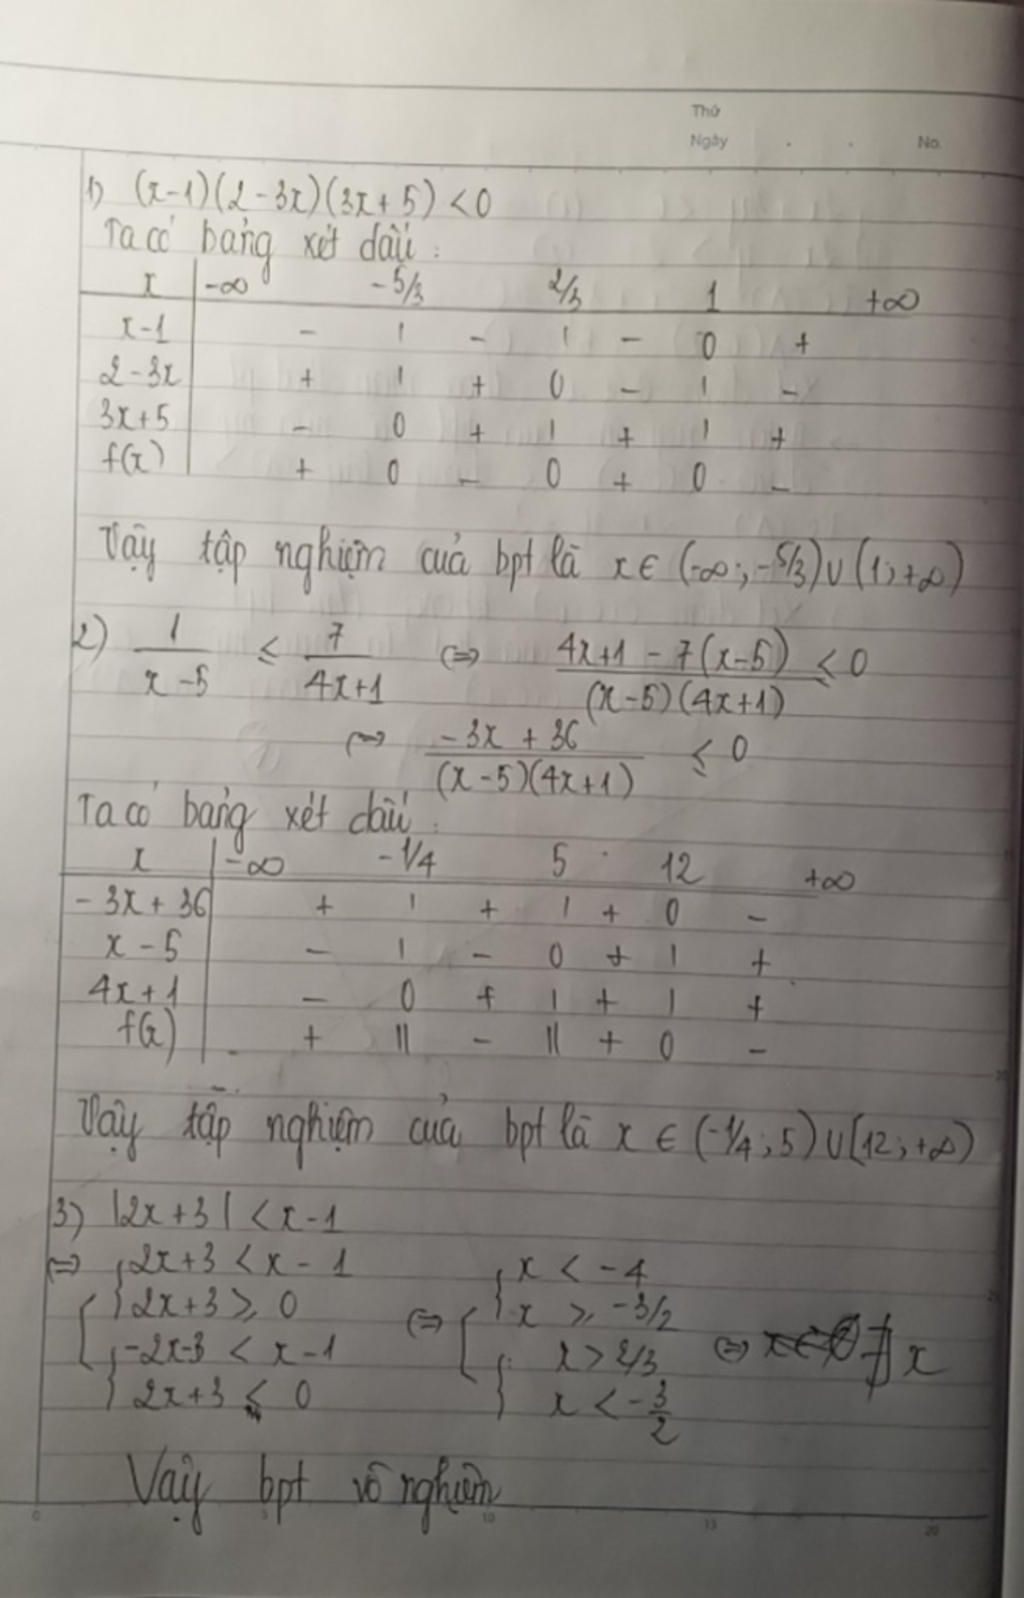 Thứ
Ngày . . No.
1) (x-1)(2-3x)(3x+5) < 0
Ta có bảng xét dấu :
x | -∞ -5/3 2/3 1 +∞
x-1 | - | - | - 0 +
2-3x | + | + 0 - | -
3x+5 | - 0 + | + | +
f(x) | + 0 - 0 + 0 -
Vậy tập nghiệm của bpt là x ∈ (-∞; -5/3) ∪ (1; +∞)
2) 1/(x-5) ≤ 7/(4x+1) ⇔ (4x+1-7(x-5))/((x-5)(4x+1)) ≤ 0
⇔ (-3x+36)/((x-5)(4x+1)) ≤ 0
Ta có bảng xét dấu :
x | -∞ -1/4 5 12 +∞
-3x+36 | + | + | + 0 -
x-5 | - | - 0 + | +
4x+1 | - 0 + | + | +
f(x) | + || - || + 0 -
Vậy tập nghiệm của bpt là x ∈ (-1/4; 5) ∪ [12; +∞)
3) |2x+3| < x-1
⇔ { 2x+3 < x-1 { x < -4
[ { 2x+3 ≥ 0 ⇔ [ { x ≥ -3/2
{ -2x-3 < x-1 { x > 2/3 ⇔ ∄ x
{ 2x+3 ≤ 0 { x < -3/2
Vậy bpt vô nghiệm
0 5 10 15 20